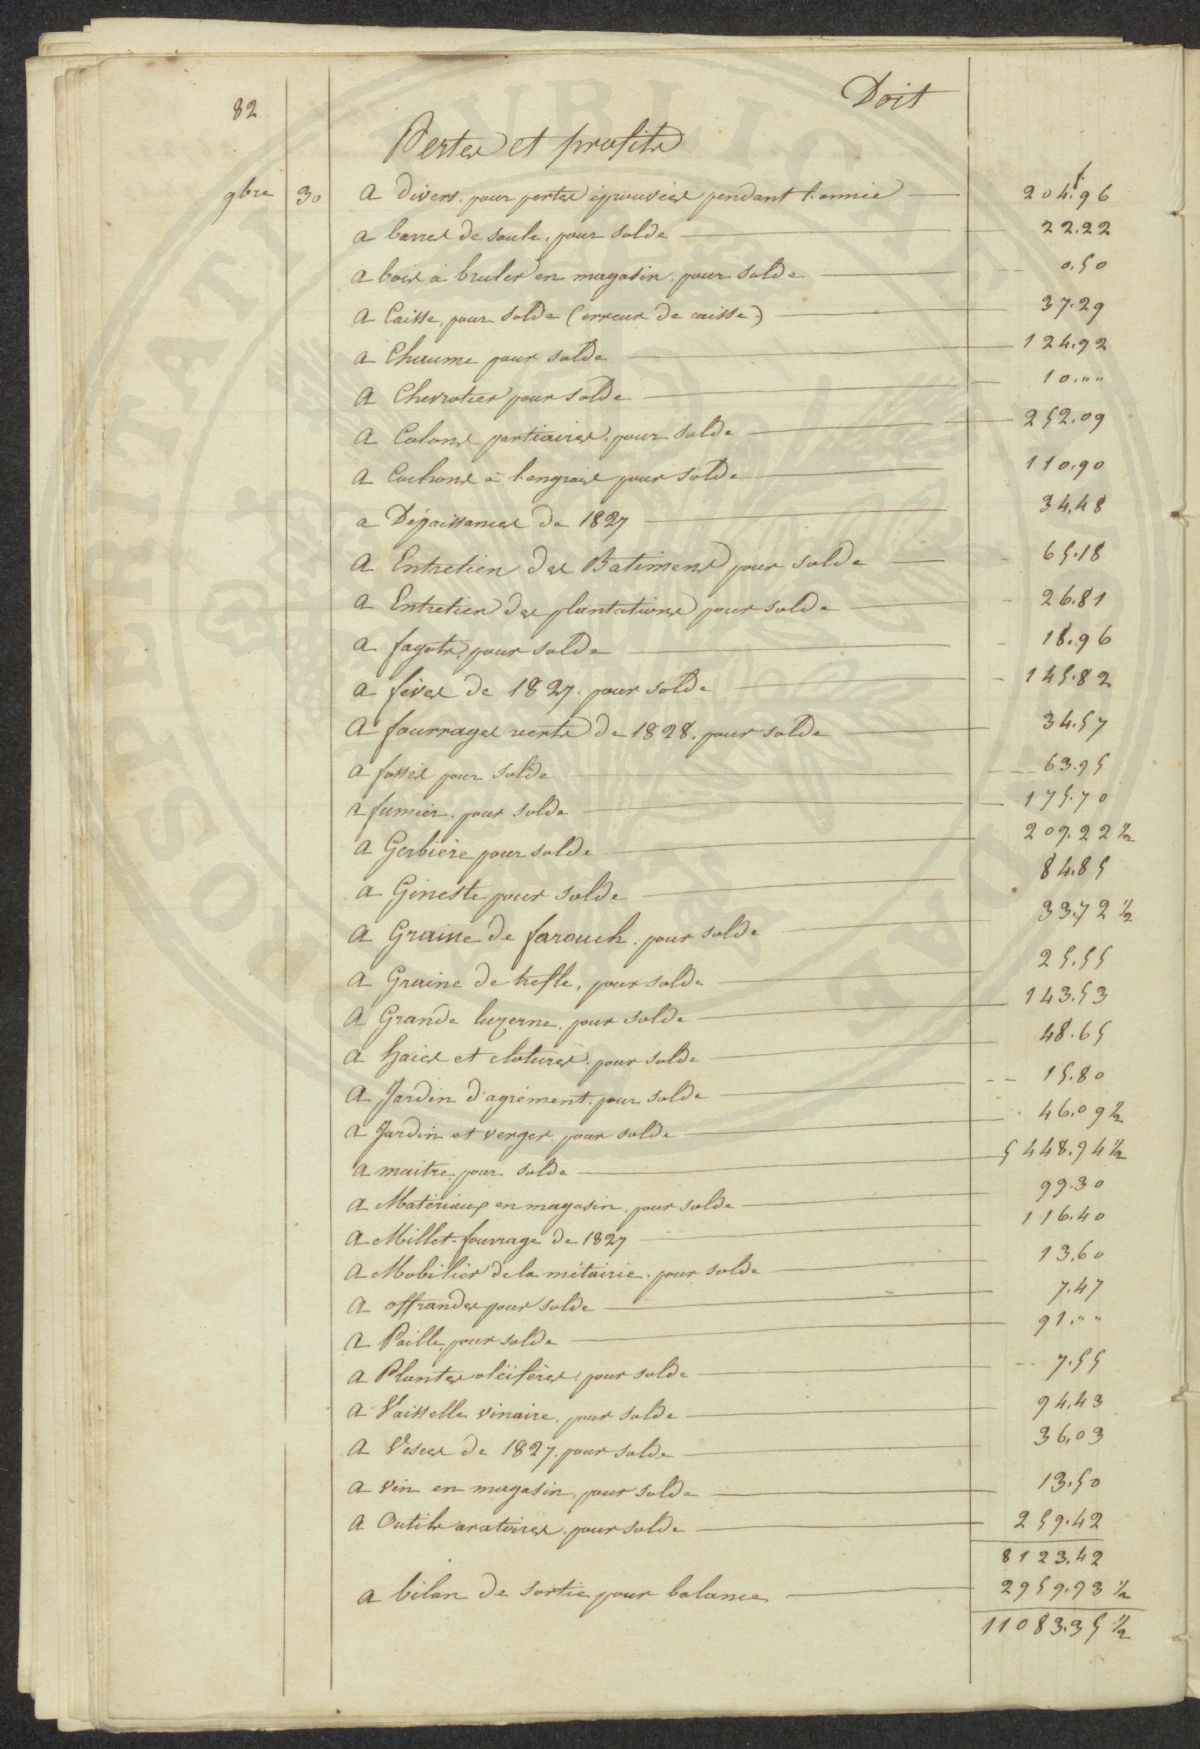 82
Doit
Pertes et profits
9bre 30 A divers. pour pertes éprouvées pendant l'année 204f.96
a barres de saule, pour solde 22.22
a bois à bruler en magasin. pour solde 0.50
A Caisse, pour solde (erreur de caisse) 37.29
a Chaume pour solde 124.92
A Chevrotier pour solde 10.""
A Colons partiaires. pour solde 252.09
A Cochons à l'engrais pour solde 110.90
a Dépaissances de 1827 34.48
A Entretien des Batimens pour solde 65.18
a Entretien des plantations pour solde 26.81
a fagots, pour solde 18.96
a féves de 1827. pour solde 145.82
A fourrages verts de 1828. pour solde 34.57
a fossés pour solde 63.95
a fumier. pour solde 175.70
a Gerbière pour solde 209.22 ½
a Gineste pour solde 84.85
A Graine de farouch. pour solde 33.72 ½
A Graine de trefle, pour solde 25.55
A Grande luzerne. pour solde 143.53
a haies et clotures. pour solde 48.65
A Jardin d'agrément. pour solde 15.80
a Jardin et verger pour solde 46.09 ½
a maitre. pour solde 5448.94 ½
a Matériaux en magasin. pour solde 99.30
A Millet-fourrage de 1827 116.40
A Mobilier de la métairie. pour solde 13.60
a offrandes pour solde 7.47
a Paille, pour solde 91.""
a Plantes oléïferes, pour solde 7.55
a Vaisselle vinaire. pour solde 94.43
A Vesces de 1827. pour solde 36.03
a vin en magasin, pour solde 13.50
a Outils aratoires. pour solde 259.42
8123.42
a bilan de sortie pour balance 2959.93 ½
11083.35 ½
PROSPERITATI PUBLICAE